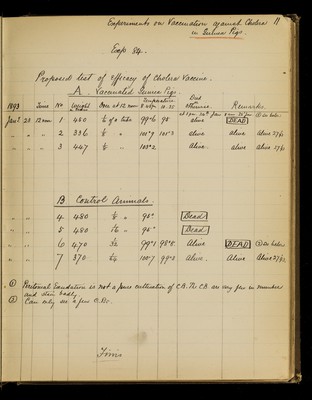 Experiments on Vaccination against Cholera 11
in Guinea Pigs.
Exp 84.
Proposed test of efficacy of Cholera Vaccine.
A. Vaccinated Guinea Pigs
1893 Time No Weight Dose at 12 noon Temperature Remarks.
Jany 20 12 noon 1 480 99.6 95 alive DEAD ① See below
" " " 2 336 " 101.9 101.3 alive alive Alive 27/1
" " " 3 447 " 103.2 Alive. alive Alive 27/1
B Control Animals.
" " 4 480 " 95° Dead
" " 5 480 " 95° Dead
" " 6 470 99.1 98.8 Alive DEAD ② See below
" " 7 370 100.7 99.8 Alive. Alive Alive 27/1
① Peritoneal Exudation is not a pure cultivation of C.B. The C.B. are very few in number
and stain badly
② Can only see a few C.Bs.
Finis